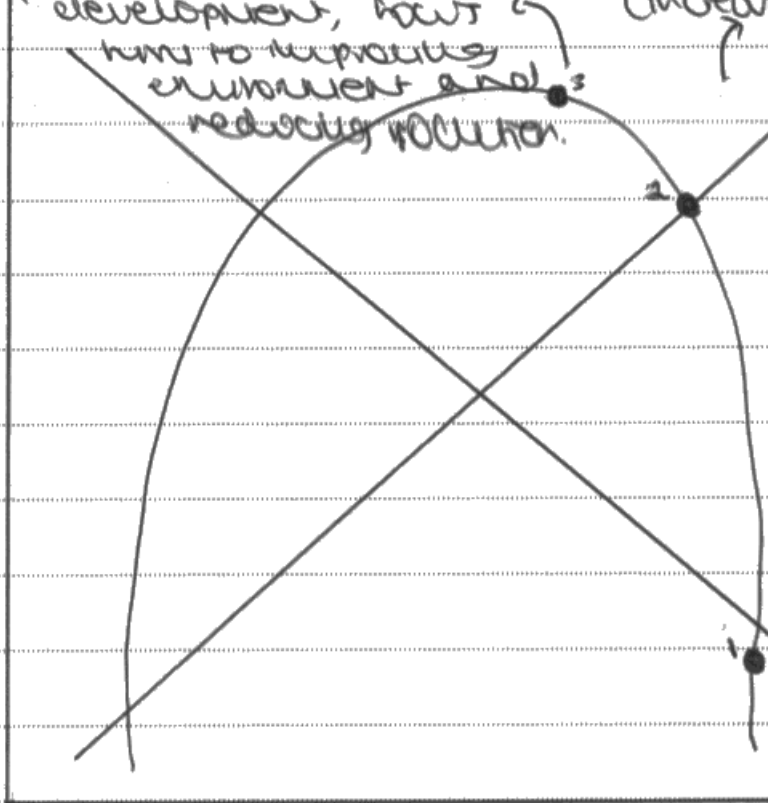 development, focus
turns to improving
environment and
reducing pollution.
3
2
1